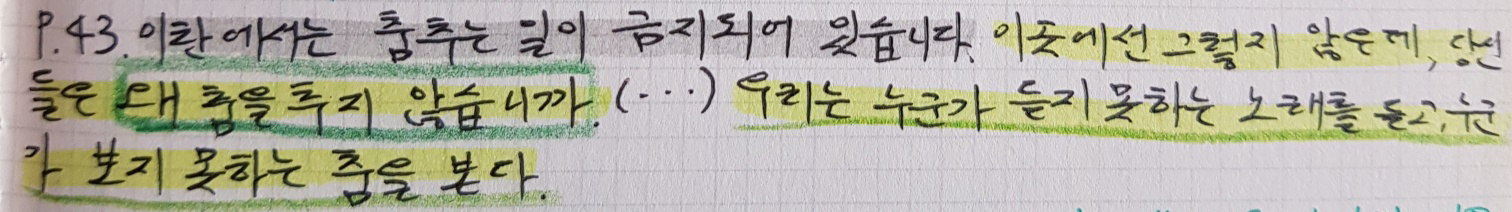 P.43. 이란에서는 춤추는 일이 금지되어 있습니다. 이곳에선 그렇지 않은데, 당신
들은 왜 춤을 추지 않습니까. (···) 우리는 누군가 듣지 못하는 노래를 듣고, 누군
가 보지 못하는 춤을 본다.